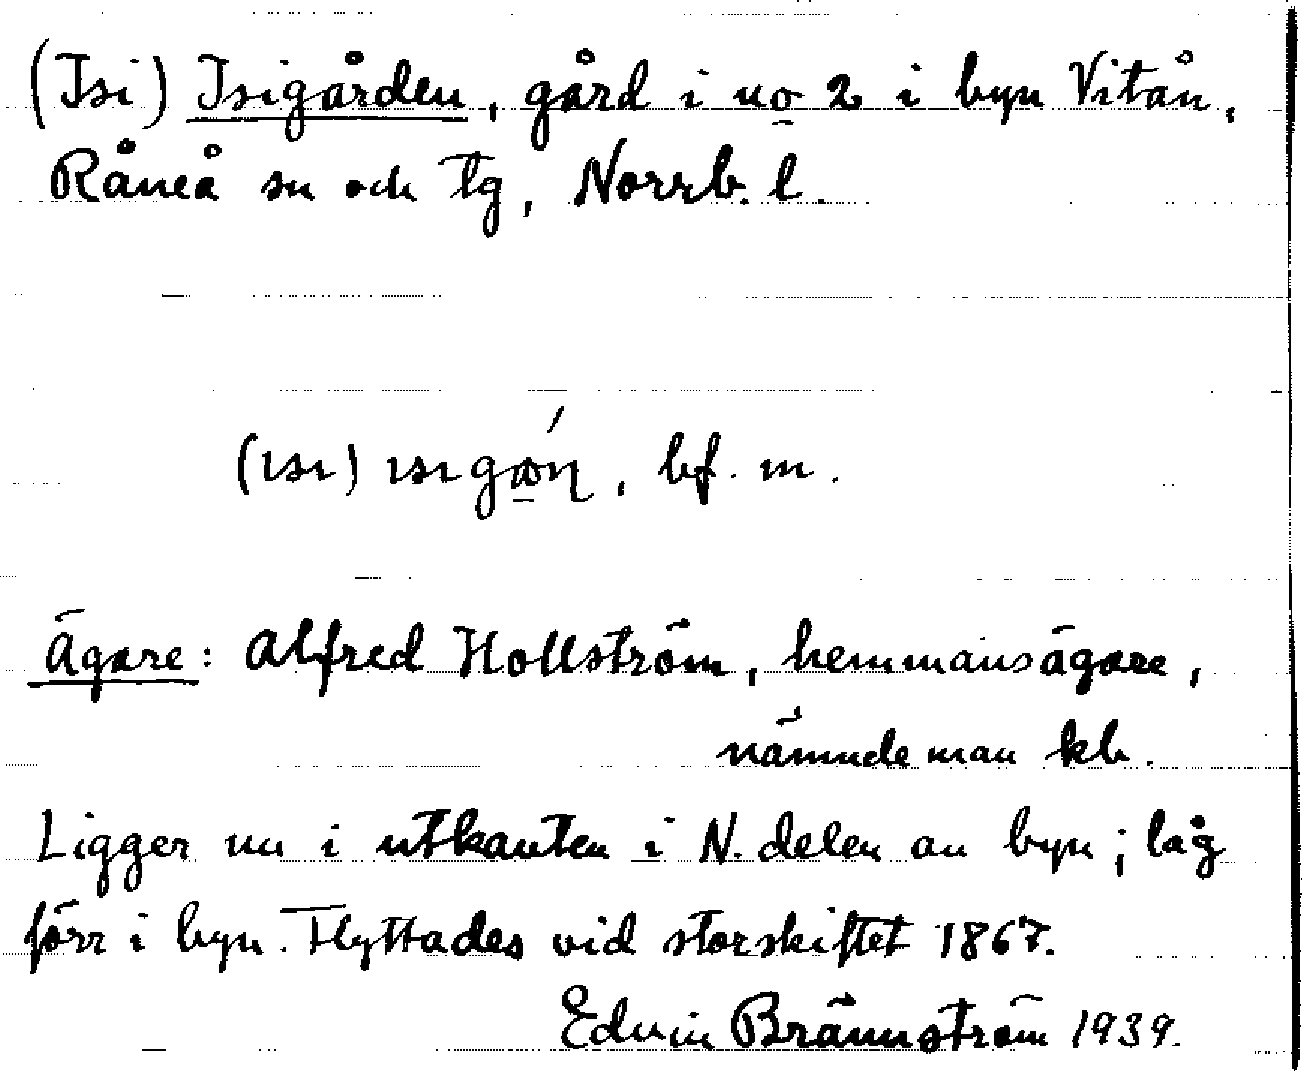 (Isi) Isigården, gård i no 2 i byn Vitån,
Råneå sn och tg, Norrb. l.
(ısı) ısıgɷ́ɳ, bf. m.
Ägare: Alfred Hollström, hemmansägare,
nämndeman kb.
Ligger nu i utkanten i N. delen av byn; låg
förr i byn. Flyttades vid storskiftet 1867.
Edwin Brännström 1939.